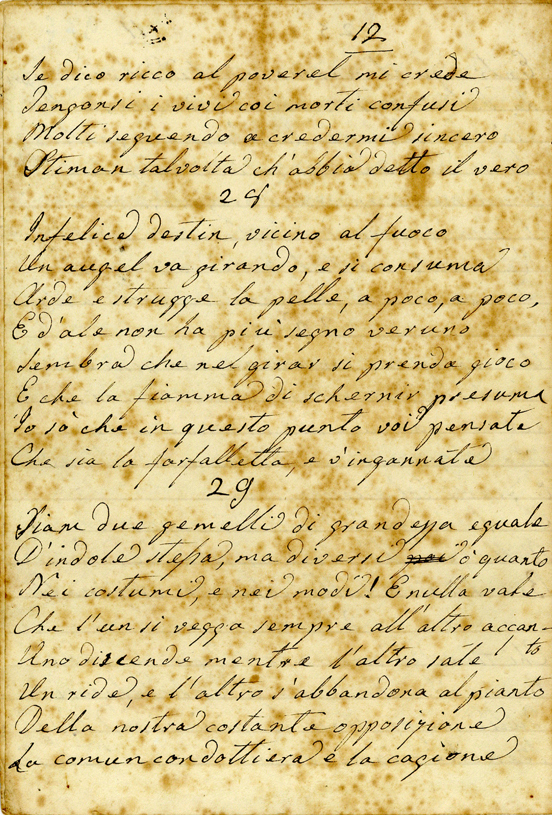 12
Se dico ricco al poverel mi crede
Tengonsi i vivi coi morti confusi
Molti seguendo a credermi sincero
Stiman talvolta ch'abbia detto il vero
28
Infelice destin, vicino al fuoco
Un augel va girando, e si consuma
Arde e strugge la pelle, a poco, a poco,
E d'ale non ha più segno veruno
Sembra che nel girar si prenda gioco
E che la fiamma di schernir presuma
Io sò che in questo punto voi pensate
Che sia la farfalletta, e v'ingannate
29
Siam due gemelli di grandessa eguale
D'indole stessa, ma diversi ò quanto
Nei costumi, e nei modi! E nulla vale
Che l'un si vegga sempre all'altro accan-
to
Uno discende mentre l'altro sale
Un ride, e l'altro s'abbandona al pianto
Della nostra costante opposizione
La comun condottiera è la cagione